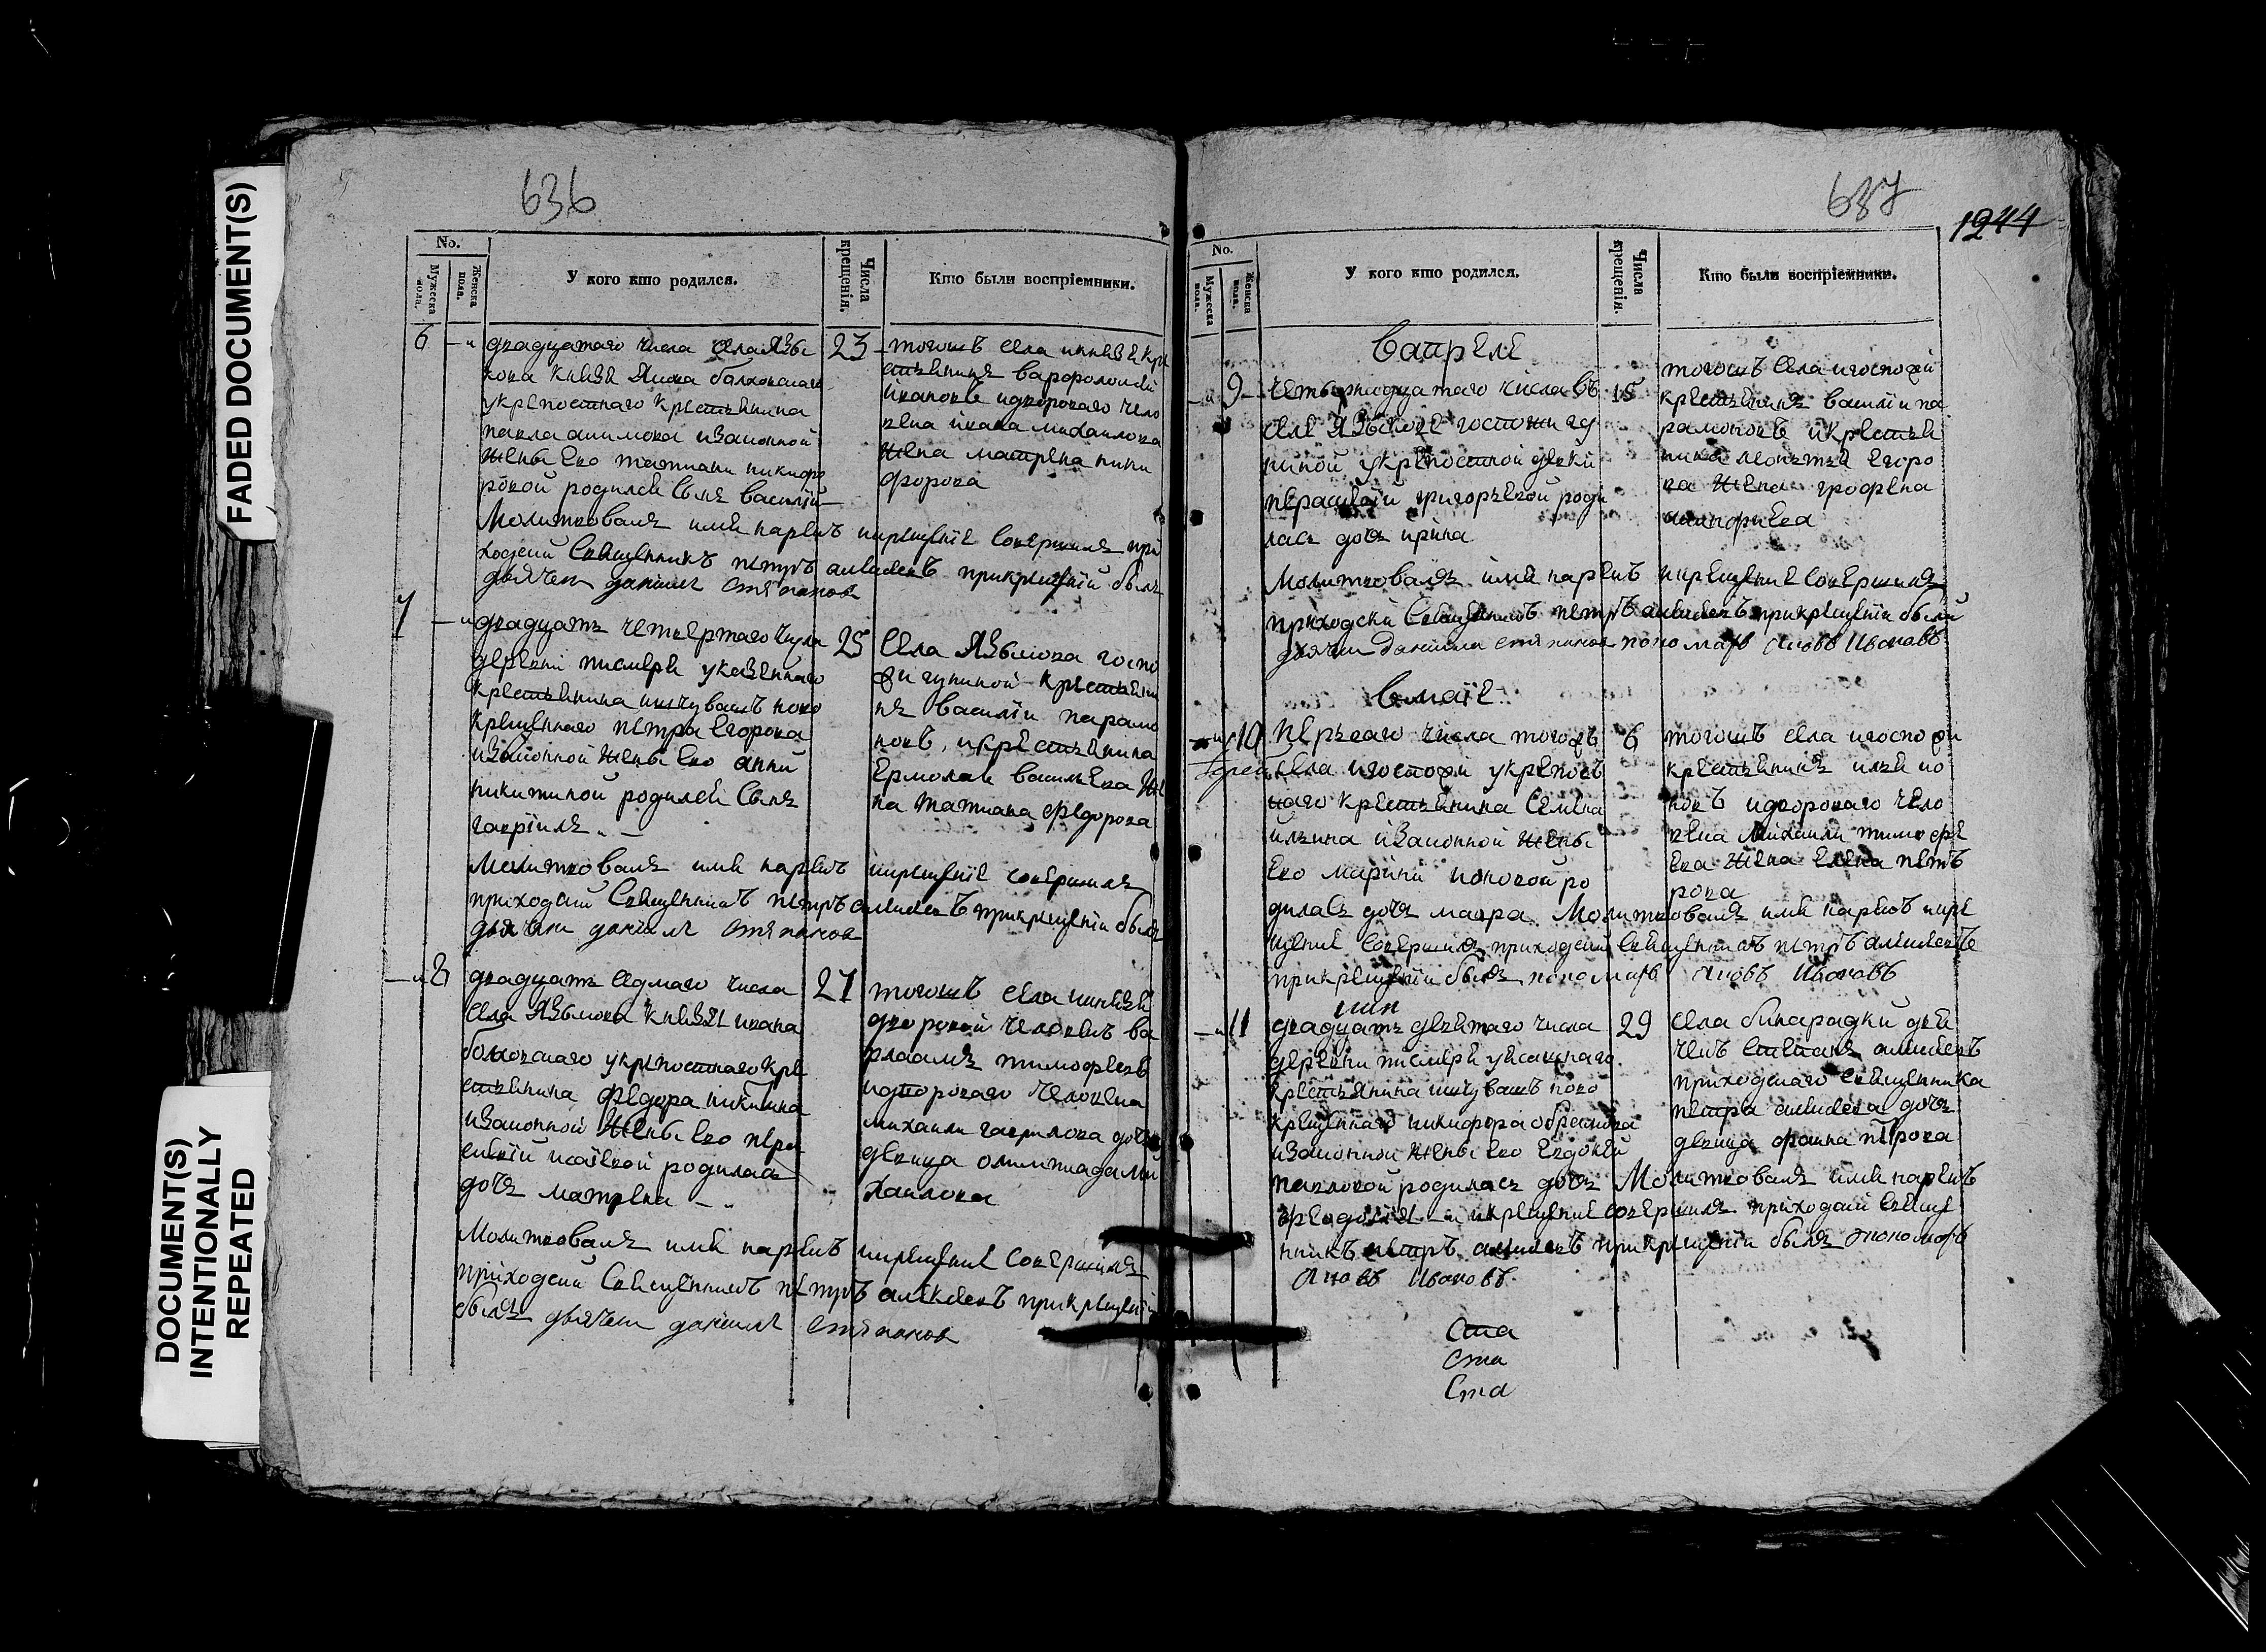 FADED DOCUMENT(S)
DOCUMENT(S)
INTENTIONALLY
REPEATED
636
No.
Мужеска пола.
Женска пола.
У кого кто родился.
Числа крещенія.
Кто были воспріемники.
6
двадцатаго числа села Язы
кова князя
укрепостнаго крестьянина
павла акимова изаконной
жены его татиани никифо
ровой родился сынъ василій
23
тогожъ села икнязя кре
стьянинъ варфоломей
ивановъ идвороваго чело
века ивана михаилова
жена матрена ники
форова
Молитвовалъ имя нарекъ икрещеніе совершилъ при
ходскій священникъ петръ алексеевъ прикрещеніи былъ
дьячекъ даніилъ стяпановъ
7
двадцать четвертаго числа
деревни писмери указеннаго
крестьянина изчувашъ ново
крещеннаго петра егорова
изаконной жены его анни
никитиной родился сынъ
гавріилъ
25
села Языкова госпо
жи гуниной крестьяни
нъ василіи парамо
новъ, икрестьянина
ермолаи василева же
на татиана федорова
Молитвовалъ имя нарекъ икрещеніе совершилъ
приходскій священникъ петръ алексеевъ прикрещеніи былъ
дьячекъ даніилъ стяпановъ
8
двадцать седмаго числа
села Языкова князя ивана
болховскаго укрепостнаго кре
стьянина федора никитина
изаконной жены его пера
сковіи исаевой родилась
дочь матрена
27
тогожъ села икнязя
дворовой человекъ ва
рлаамъ тимофеевъ
идвороваго человека
михаили гаврилова дочь
девица олимпиада ми
хаилова
Молитвовалъ имя нарекъ икрещеніе совершилъ
приходскій священникъ петръ алексеевъ прикрещеніи
былъ дьячекъ даніилъ стяпановъ
637
1244
No.
Мужеска пола.
Женска пола.
У кого кто родился.
Числа крещенія.
Кто были воспріемники.
Вапреле
9
четырнадцатаго числа въ
селе Языкове госпожи гу
ниной укрепостной девки
перасковіи григорьевой роди
лась дочь ирина
15
тогожъ села игоспожи
крестьянинъ василіи па
рамоновъ икрестья
нина леонтья егоро
ва жена грофена
Молитвовалъ имя нарекъ икрещеніе совершилъ
приходскій священникъ петръ алексеевъ прикрещеніи были
дьячекъ даніилъ стяпановъ пономарь Яковъ Ивановъ
Вмаіе
10
перваго числа тогожъ
села игоспожи укрепост
наго крестьянина семена
ильина изаконной жены
его марини ионовой ро
дилась дочь мавра.
6
тогожъ села игоспожи
крестьянинъ илья ио
новъ идвороваго чело
века михаили тимофе
ева жена елена пет
рова
Молитвовалъ имя нарекъ икре
щеніе совершилъ приходскій священникъ петръ алексеевъ
прикрещеніи былъ пономарь Яковъ Ивановъ
11
двадцать девятаго числа
деревни писмери указаннаго
крестьянина изчувашъ ново
крещеннаго никифора
изаконной жены его евдокеи
павловой родилась дочь
феодосія
29
села бинарадки дья
чекъ степанъ алексеевъ
приходскаго священника
петра алексеева дочь
девица фаина петрова
Молитвовалъ имя нарекъ
и икрещеніе совершилъ приходскій священ
никъ петръ алексеевъ прикрещеніи былъ пономарь
Яковъ Ивановъ.
Ста
Ста
Ста